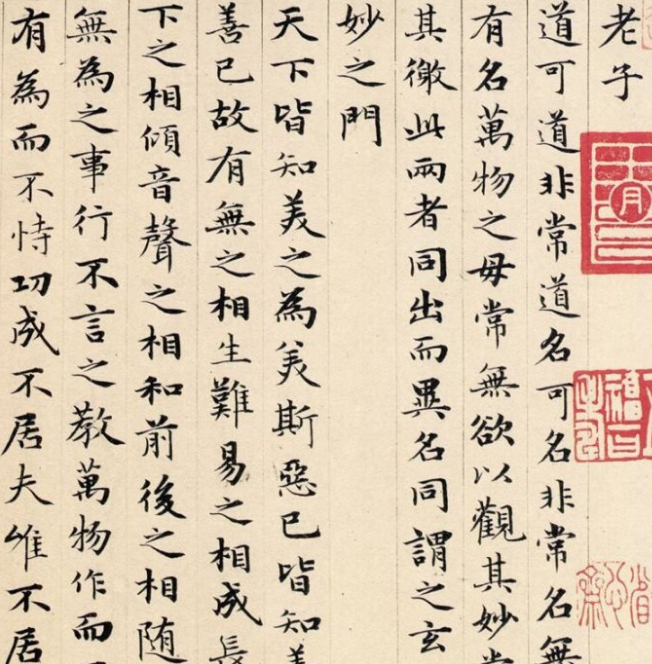 老子
道可道非常道名可名非常名無
有名萬物之母常無欲以觀其妙常
其徼此兩者同出而異名同謂之玄
妙之門
天下皆知美之為美斯惡已皆知
善已故有無之相生難易之相成長
下之相傾音聲之相和前後之相随
無為之事行不言之教萬物作而
有為而不恃功成不居夫惟不居